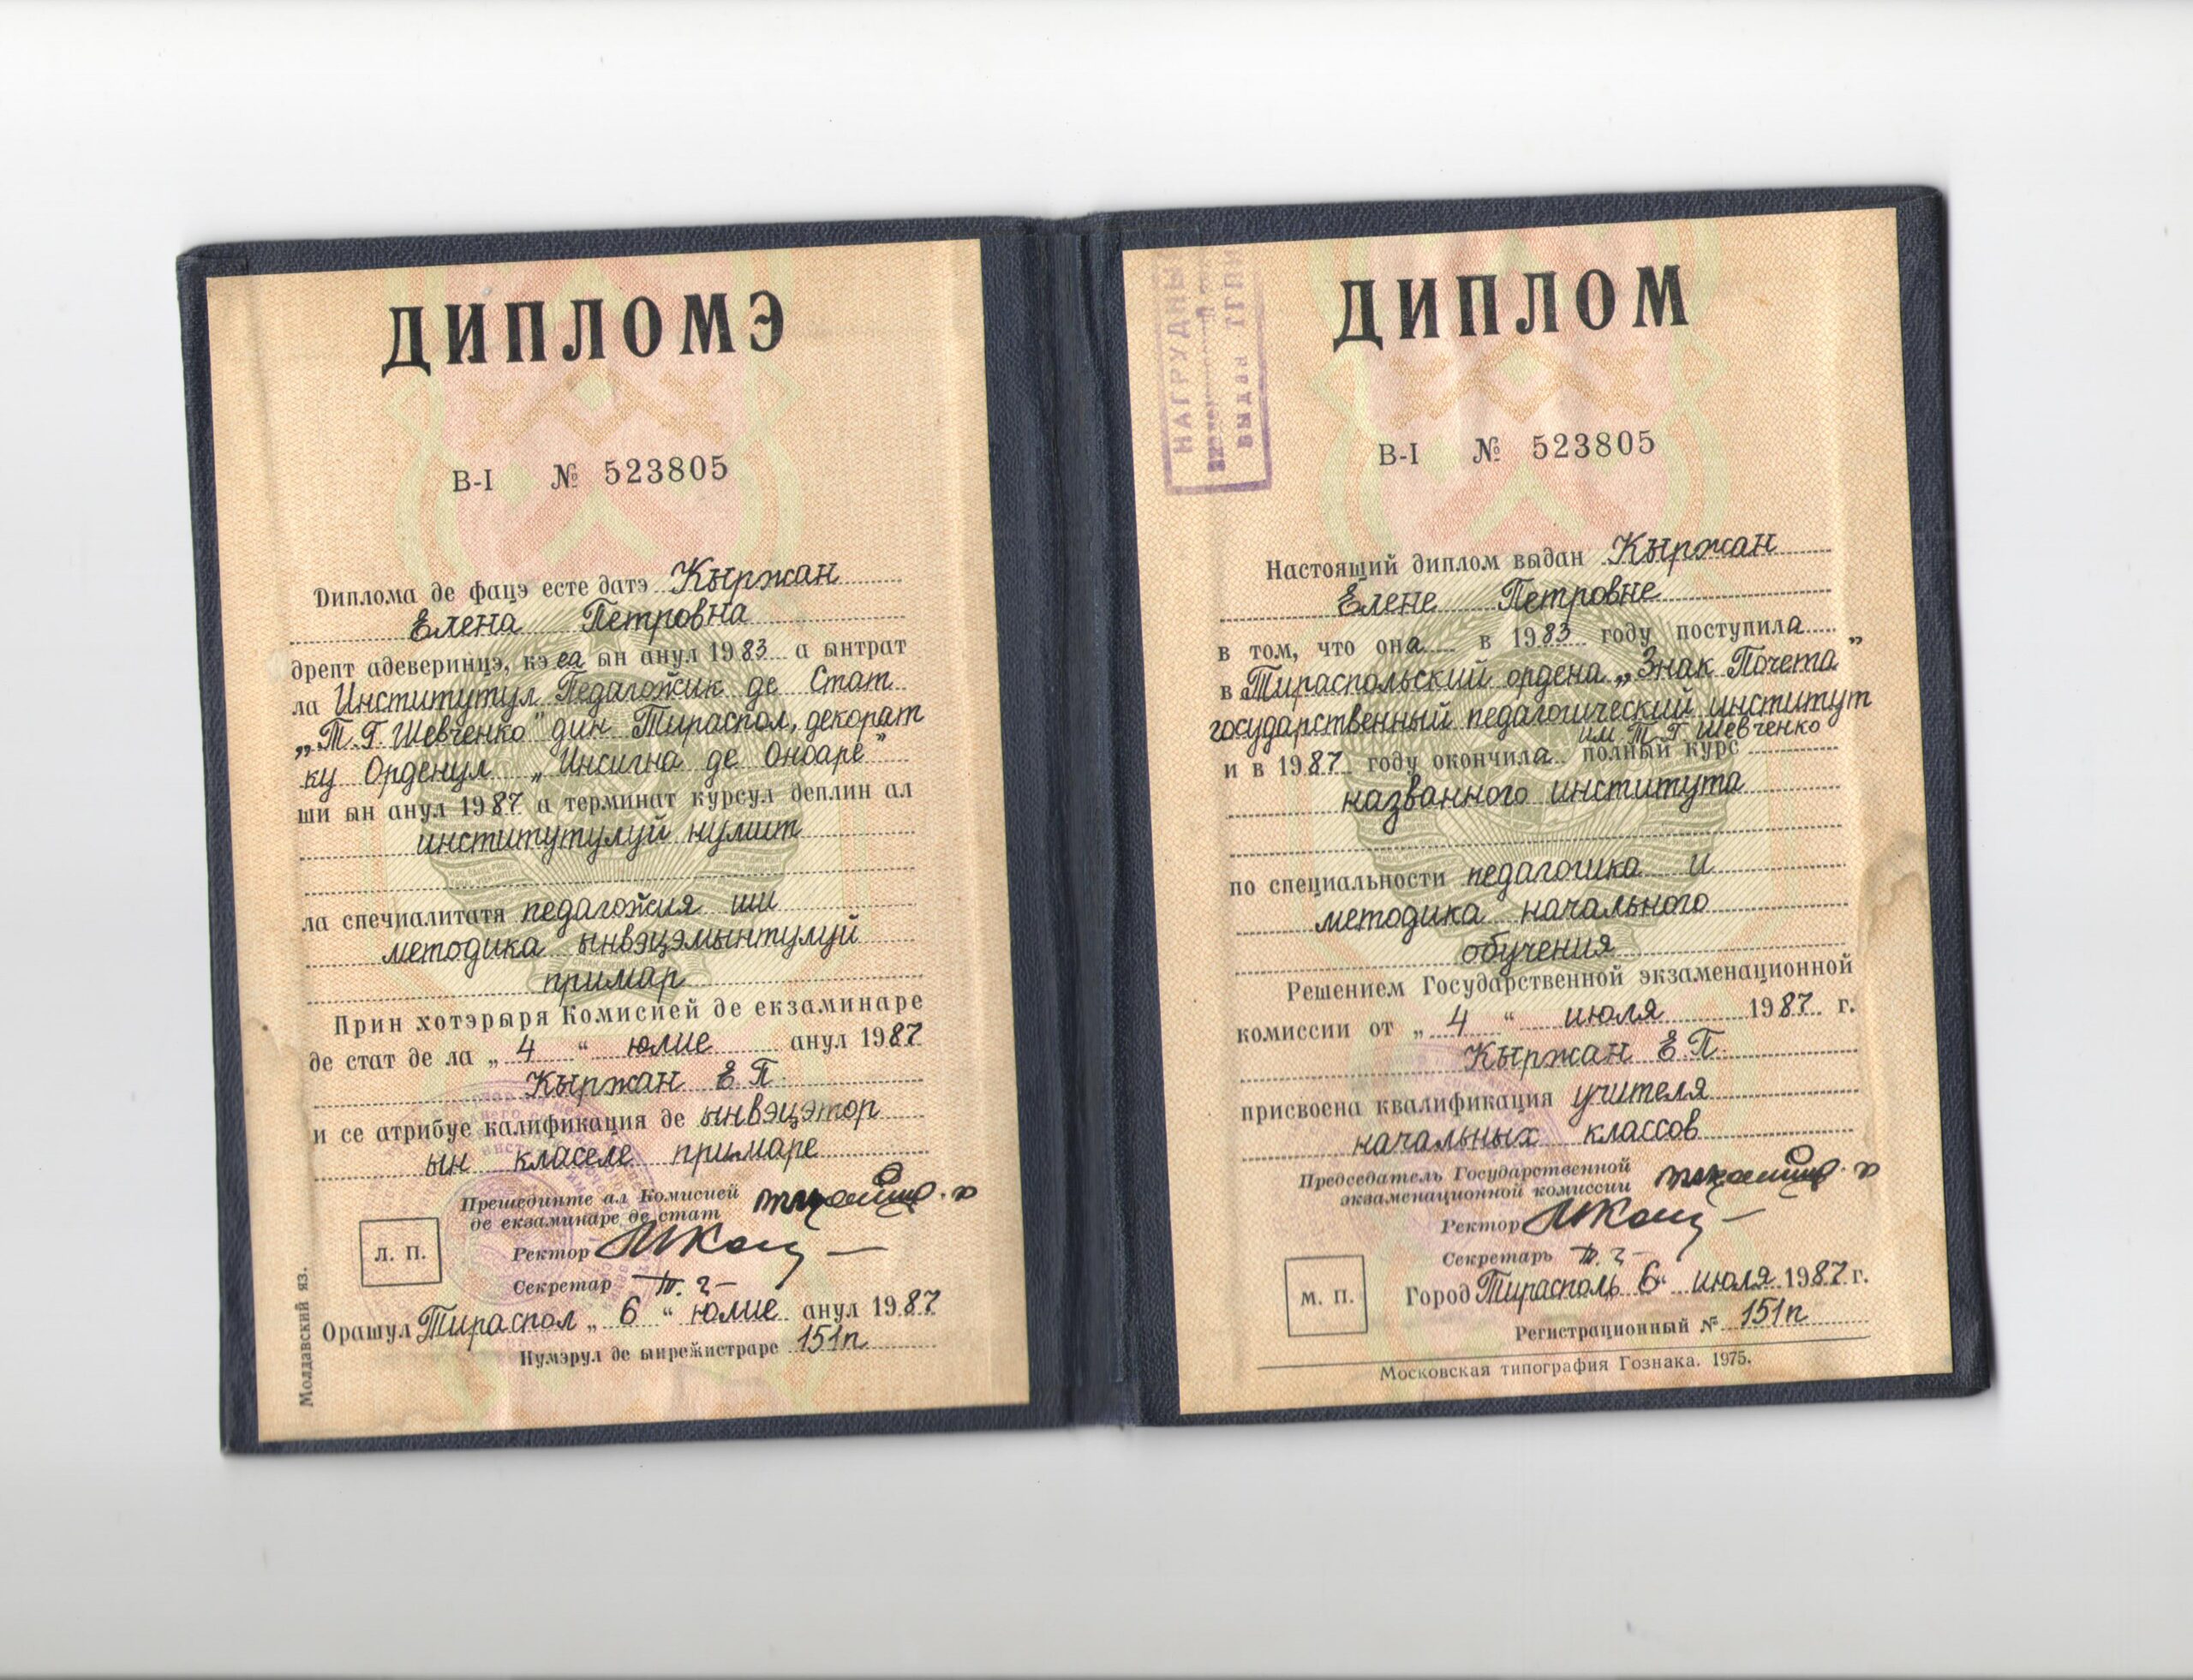 ДИПЛОМЭ
В-I № 523805
Диплома де фацэ есте датэ Кыржан
Елена Петровна
дрепт адеверинцэ, кэ еа ын анул 1983 а ынтрат
ла Институтул Педагожик де Стат
„Т. Г. Шевченко" дин Тираспол, декорат
ку Орденул „Инсигна де Оноаре"
ши ын анул 1987 а терминат курсул деплин ал
институтулуй нумит
ла специалитатя педагожия ши
методика ынвэцэмынтулуй
примар
Прин хотэрыря Комисией де екзаминаре
де стат де ла „4" юлие анул 1987
Кыржан Е. П.
и се атрибуе калификация де ынвэцэтор
ын класеле примаре
Прешединте ал Комисией
де екзаминаре де стат
Л. П.
Ректор
Секретар
Орашул Тираспол „6" юлие анул 1987
Нумэрул де ынрежистраре 151п
Молдавский яз.
ДИПЛОМ
НАГРУДНЫ
выдан ТГПИ
В-I № 523805
Настоящий диплом выдан Кыржан
Елене Петровне
в том, что она в 1983 году поступила
в Тираспольский ордена „Знак Почета"
государственный педагогический институт
им. Т. Г. Шевченко
и в 1987 году окончила полный курс
названного института
по специальности педагогика и
методика начального
обучения
Решением Государственной экзаменационной
комиссии от „4" июля 1987 г.
Кыржан Е. П.
присвоена квалификация учителя
начальных классов
Председатель Государственной
экзаменационной комиссии
Ректор
Секретарь
М. П.
Город Тирасполь 6" июля 1987 г.
Регистрационный № 151п
Московская типография Гознака. 1975.